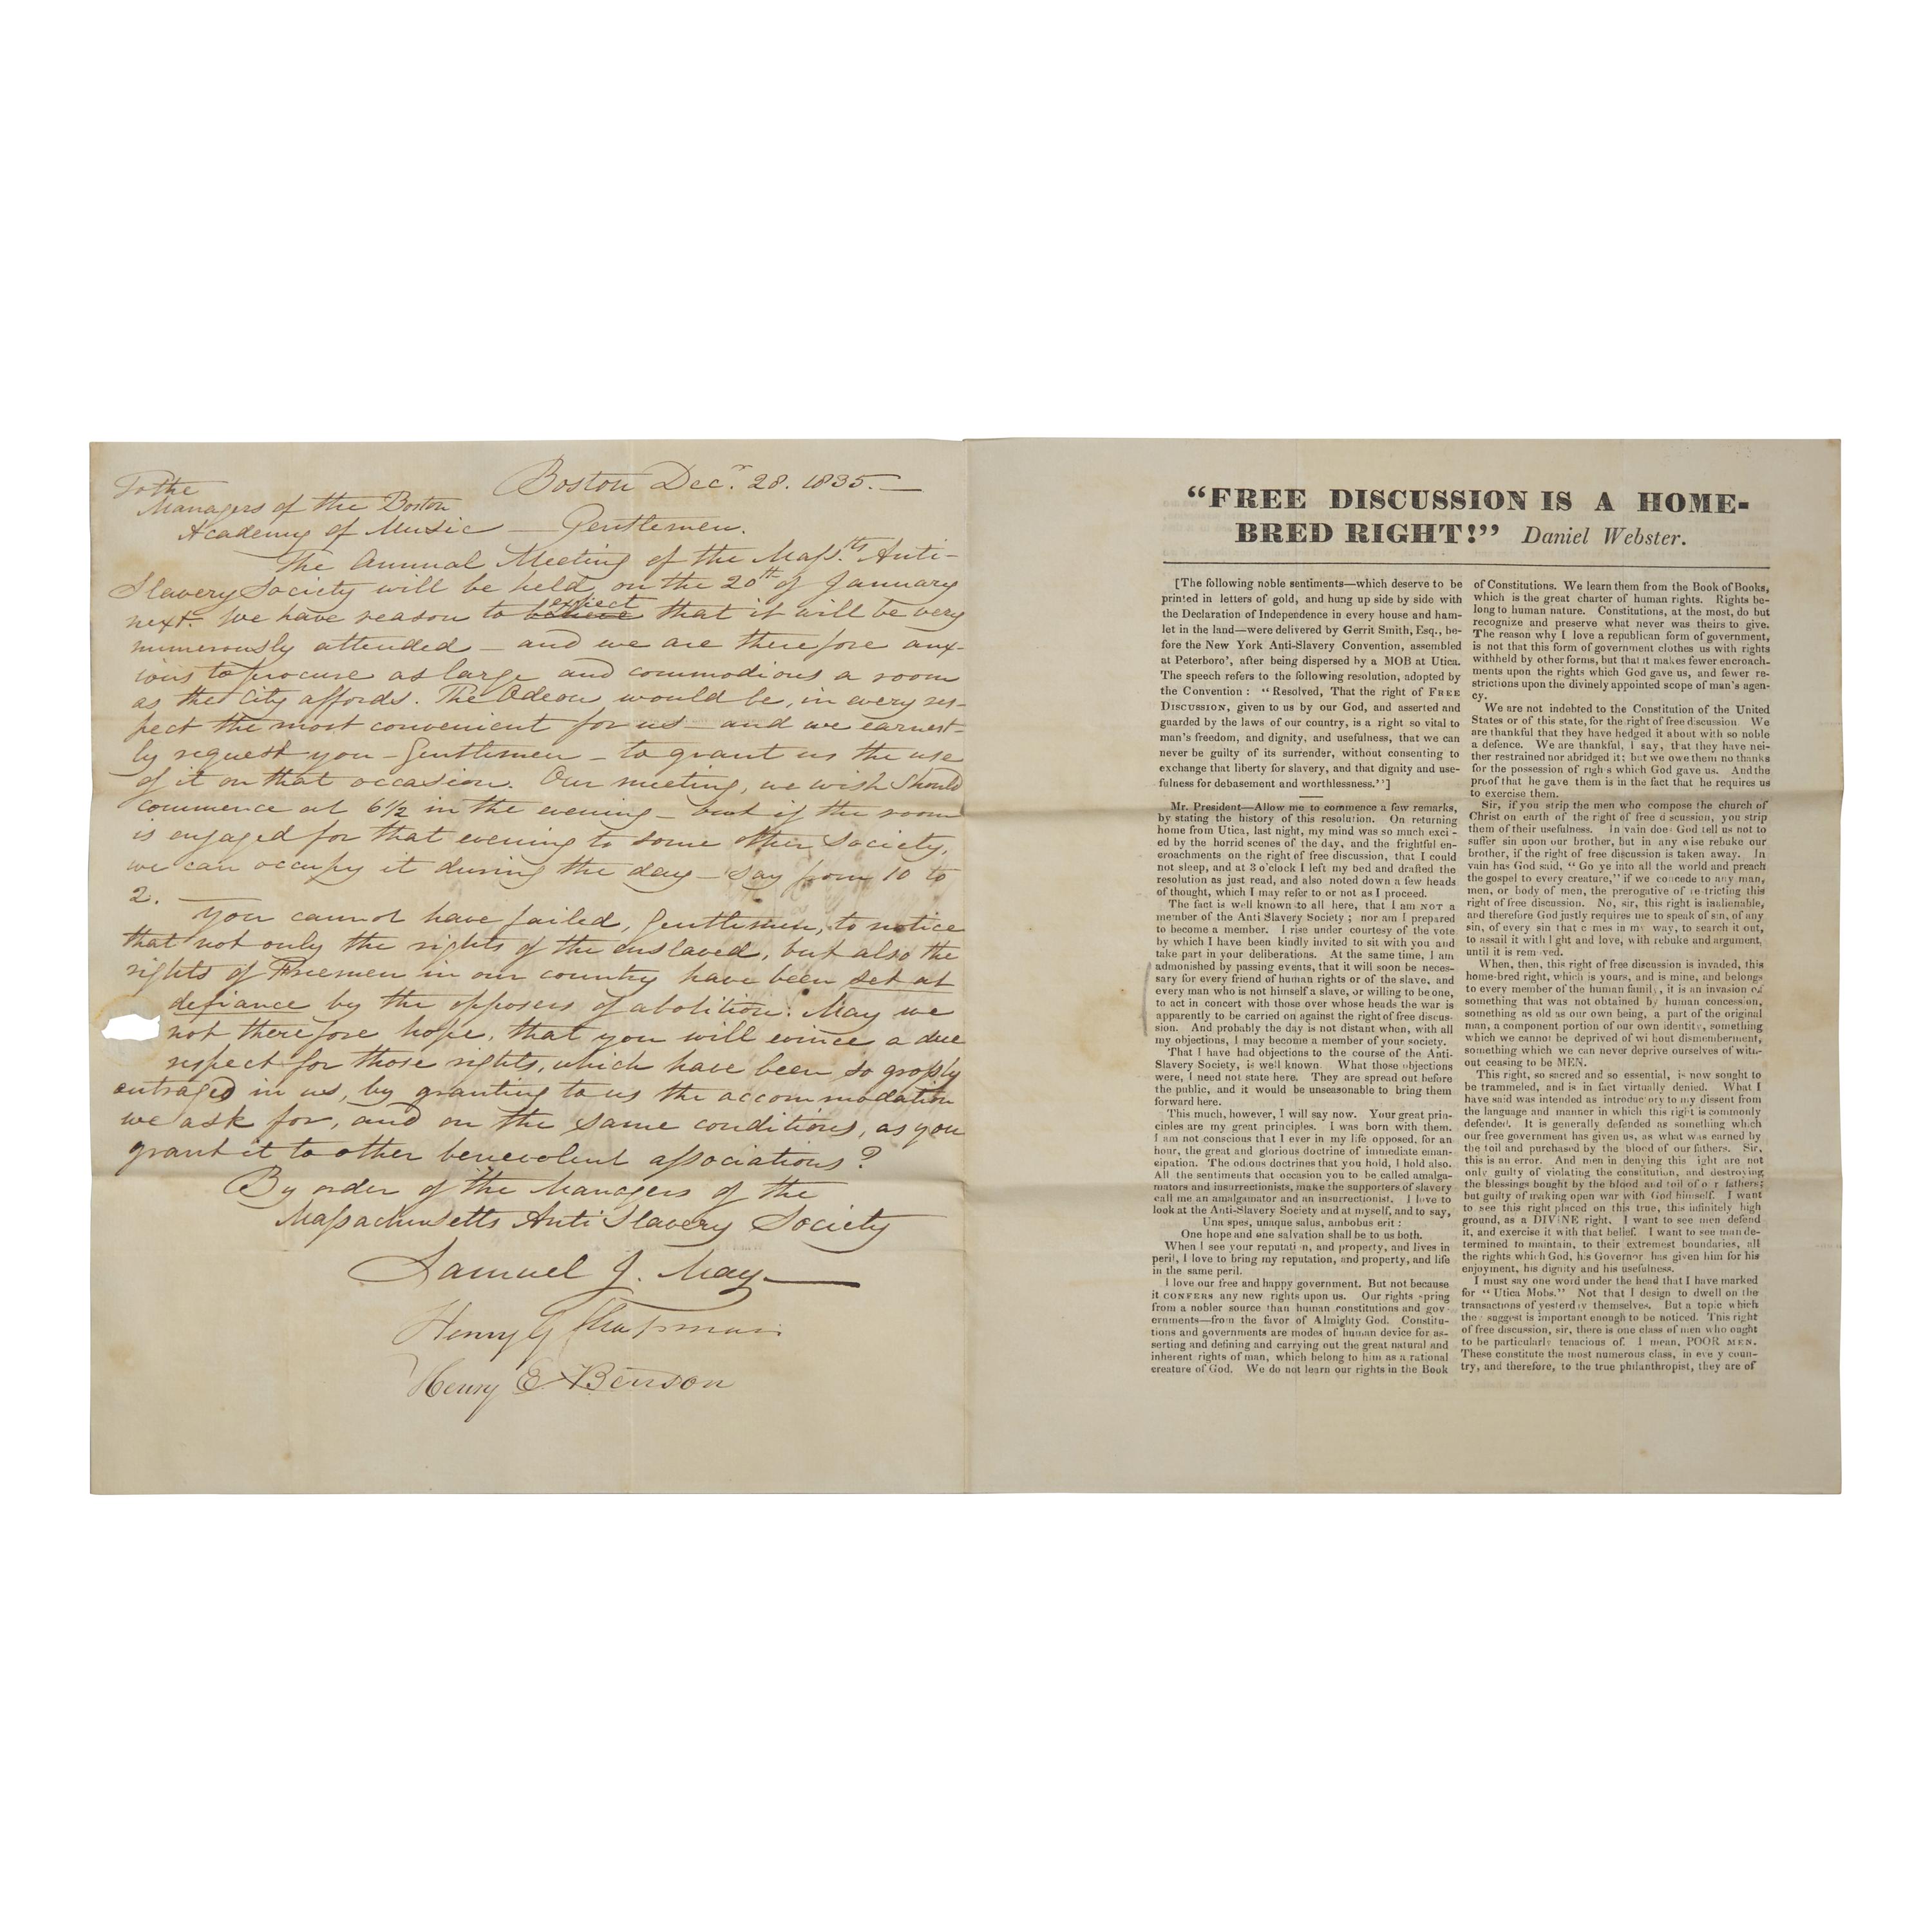 Boston Decr. 28. 1835. —
To the
Managers of the Boston
Academy of Music — Gentlemen.
The Annual Meeting of the Massts Anti-
Slavery Society will be held on the 20th of January
next. We have reason to believe expect that it will be very
numerously attended — and we are therefore anx-
ious to procure as large and commodious a room
as the City affords. The Odeon would be, in every res-
pect the most convenient for us — and we earnest-
ly request you — Gentlemen — to grant us the use
of it on that occasion. Our meeting, we wish should
commence at 6½ in the evening — but if the room
is engaged for that evening to some other Society,
we can occupy it during the day — say from 10 to
2.
You cannot have failed, Gentlemen, to notice
that not only the rights of the enslaved, but also the
rights of Freemen in our country have been set at
defiance by the opposers of abolition. May we
not therefore hope, that you will evince a due
respect for those rights, which have been so grossly
outraged in us, by granting to us the accommodation
we ask for, and on the same conditions, as you
grant it to other benevolent associations?
By order of the Managers of the
Massachusetts Anti Slavery Society
Samuel J. May
Henry G Chapman
Henry E Benson
“FREE DISCUSSION IS A HOME-
BRED RIGHT!” Daniel Webster.
[The following noble sentiments—which deserve to be
printed in letters of gold, and hung up side by side with
the Declaration of Independence in every house and ham-
let in the land—were delivered by Gerrit Smith, Esq., be-
fore the New York Anti-Slavery Convention, assembled
at Peterboro', after being dispersed by a MOB at Utica.
The speech refers to the following resolution, adopted by
the Convention: “Resolved, That the right of FREE
DISCUSSION, given to us by our God, and asserted and
guarded by the laws of our country, is a right so vital to
man's freedom, and dignity, and usefulness, that we can
never be guilty of its surrender, without consenting to
exchange that liberty for slavery, and that dignity and use-
fulness for debasement and worthlessness.”]
Mr. President—Allow me to commence a few remarks,
by stating the history of this resolution. On returning
home from Utica, last night, my mind was so much exci-
ed by the horrid scenes of the day, and the frightful en-
croachments on the right of free discussion, that I could
not sleep, and at 3 o'clock I left my bed and drafted the
resolution as just read, and also noted down a few heads
of thought, which I may refer to or not as I proceed.
The fact is well known to all here, that I am NOT a
member of the Anti Slavery Society; nor am I prepared
to become a member. I rise under courtesy of the vote
by which I have been kindly invited to sit with you and
take part in your deliberations. At the same time, I am
admonished by passing events, that it will soon be neces-
sary for every friend of human rights or of the slave, and
every man who is not himself a slave, or willing to be one,
to act in concert with those over whose heads the war is
apparently to be carried on against the right of free discus-
sion. And probably the day is not distant when, with all
my objections, I may become a member of your society.
That I have had objections to the course of the Anti-
Slavery Society, is well known. What those objections
were, I need not state here. They are spread out before
the public, and it would be unseasonable to bring them
forward here.
This much, however, I will say now. Your great prin-
ciples are my great principles. I was born with them.
I am not conscious that I ever in my life opposed, for an
hour, the great and glorious doctrine of immediate eman-
cipation. The odious doctrines that you hold, I hold also.
All the sentiments that occasion you to be called amalga-
mators and insurrectionists, make the supporters of slavery
call me an amalgamator and an insurrectionist. I love to
look at the Anti-Slavery Society and at myself, and to say,
Una spes, unaque salus, ambobus erit:
One hope and one salvation shall be to us both.
When I see your reputati n, and property, and lives in
peril, I love to bring my reputation, and property, and life
in the same peril.
I love our free and happy government. But not because
it CONFERS any new rights upon us. Our rights spring
from a nobler source than human constitutions and gov-
ernments—from the favor of Almighty God. Constitu-
tions and governments are modes of human device for as-
serting and defining and carrying out the great natural and
inherent rights of man, which belong to him as a rational
creature of God. We do not learn our rights in the Book
of Constitutions. We learn them from the Book of Books,
which is the great charter of human rights. Rights be-
long to human nature. Constitutions, at the most, do but
recognize and preserve what never was theirs to give.
The reason why I love a republican form of government,
is not that this form of government clothes us with rights
withheld by other forms, but that it makes fewer encroach-
ments upon the rights which God gave us, and fewer re-
strictions upon the divinely appointed scope of man's agen-
cy.
We are not indebted to the Constitution of the United
States or of this state, for the right of free discussion. We
are thankful that they have hedged it about with so noble
a defence. We are thankful, I say, that they have nei-
ther restrained nor abridged it; but we owe them no thanks
for the possession of righ s which God gave us. And the
proof that he gave them is in the fact that he requires us
to exercise them.
Sir, if you strip the men who compose the church of
Christ on earth of the right of free d scussion, you strip
them of their usefulness. In vain does God tell us not to
suffer sin upon our brother, but in any wise rebuke our
brother, if the right of free discussion is taken away. In
vain has God said, “Go ye into all the world and preach
the gospel to every creature,” if we concede to any man,
men, or body of men, the prerogative of re-tricting this
right of free discussion. No, sir, this right is inalienable,
and therefore God justly requires me to speak of sin, of any
sin, of every sin that c mes in my way, to search it out,
to assail it with l ght and love, with rebuke and argument,
until it is rem ved.
When, then, this right of free discussion is invaded, this
home-bred right, which is yours, and is mine, and belongs
to every member of the human family, it is an invasion of
something that was not obtained by human concession,
something as old as our own being, a part of the original
man, a component portion of our own identity, something
which we cannot be deprived of wi hout dismemberment,
something which we can never deprive ourselves of with-
out ceasing to be MEN.
This right, so sacred and so essential, is now sought to
be trammeled, and is in fact virtually denied. What I
have said was intended as introduc ory to my dissent from
the language and manner in which this right is commonly
defended. It is generally defended as something which
our free government has given us, as what was earned by
the toil and purchased by the blood of our fathers. Sir,
this is an error. And men in denying this ight are not
only guilty of violating the constitution, and destroying
the blessings bought by the blood and toil of o r fathers;
but guilty of making open war with God himself. I want
to see this right placed on this true, this infinitely high
ground, as a DIVINE right. I want to see men defend
it, and exercise it with that belief. I want to see man de-
termined to maintain, to their extremest boundaries, all
the rights which God, his Governor has given him for his
enjoyment, his dignity and his usefulness.
I must say one word under the head that I have marked
for “Utica Mobs.” Not that I design to dwell on the
transactions of yesterd y themselves. But a topic which
the suggest is important enough to be noticed. This right
of free discussion, sir, there is one class of men who ought
to be particularly tenacious of. I mean, POOR MEN.
These constitute the most numerous class, in eve y coun-
try, and therefore, to the true philanthropist, they are of